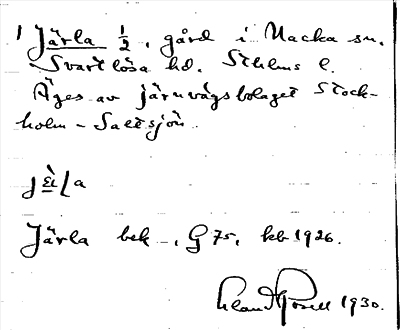 1 Järla 1/2, gård i Nacka sn.
Svartlösa hd. Sthlms l.
Äges av järnvägsbolaget Stock-
holm - Saltsjön.
Järla bek -, G 75, kb 1926.
1930.